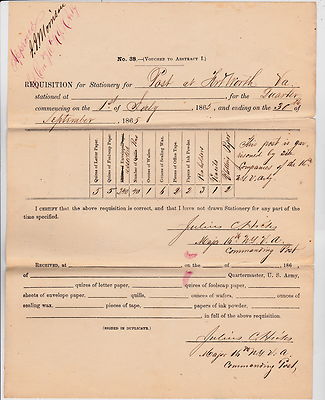 No. 38.—(VOUCHER TO ABSTRACT I.)
REQUISITION for Stationery for Post at Fort North Va
stationed at for the Quarter
commencing on the 1st of July 1865, and ending on the 30th
September 1865
Quires of Letter Paper.
Quires of Foolscap Paper.
Number of
Ounces of Wafers.
Ounces of Sealing Wax.
Pieces of Office Tape.
Papers of Ink Powder.
5 5 40 1 4 2 2 3 1 2
This post is gar
risoned by six
Companies of the 16th
N.Y. Arty
I CERTIFY that the above requisition is correct, and that I have not drawn Stationery for any part of the
time specified.
Julius C Hicks
Major 16th N.Y. V. A.
Commanding Post
RECEIVED, at , on the of 186 ,
of Quartermaster, U. S. Army,
quires of letter paper, quires of foolscap paper,
sheets of envelope paper, quills, ounces of wafers, ounces of
sealing wax, pieces of tape, papers of ink powder,
in full of the above requisition.
(SIGNED IN DUPLICATE.)
Julius C Hicks
Major 16th N.Y. V. A.
Commanding Post,